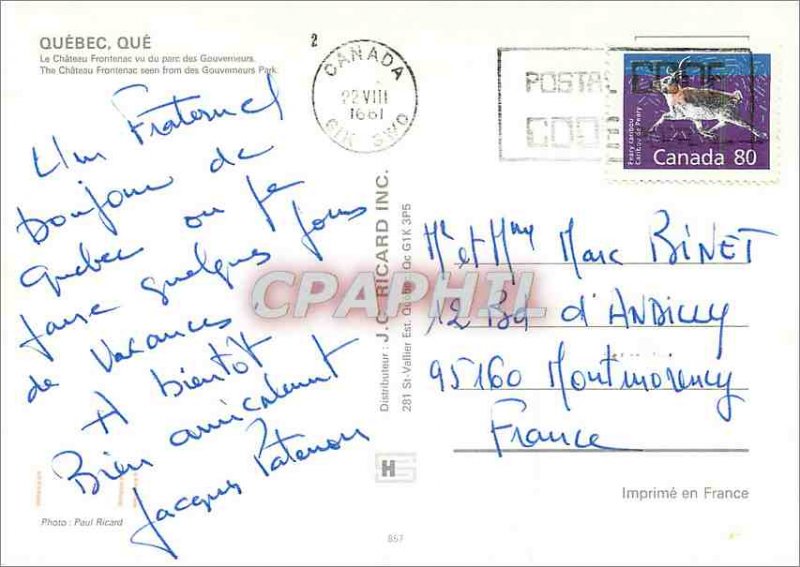 QUÉBEC, QUÉ
Le Château Frontenac vu du parc des Gouverneurs.
The Château Frontenac seen from des Gouverneurs Park.
Un Fraternel
bonjour de
Quebec ou je
passe quelques jours
de vacances.
A bientôt
Bien amicalement
Jacques
Photo : Paul Ricard
2
CANADA
22 VIII
1991
POSTAL CODE
CODE
Peary caribou
Caribou de Peary
Canada 80
Distributeur : J.C. RICARD INC.
281 St-Vallier Est. Québec Qc G1K 3P5
CPAPHIL
Mr et Mme Marc BINET
12 Bd d'ANDILLY
95160 Montmorency
France
HS
Imprimé en France
867